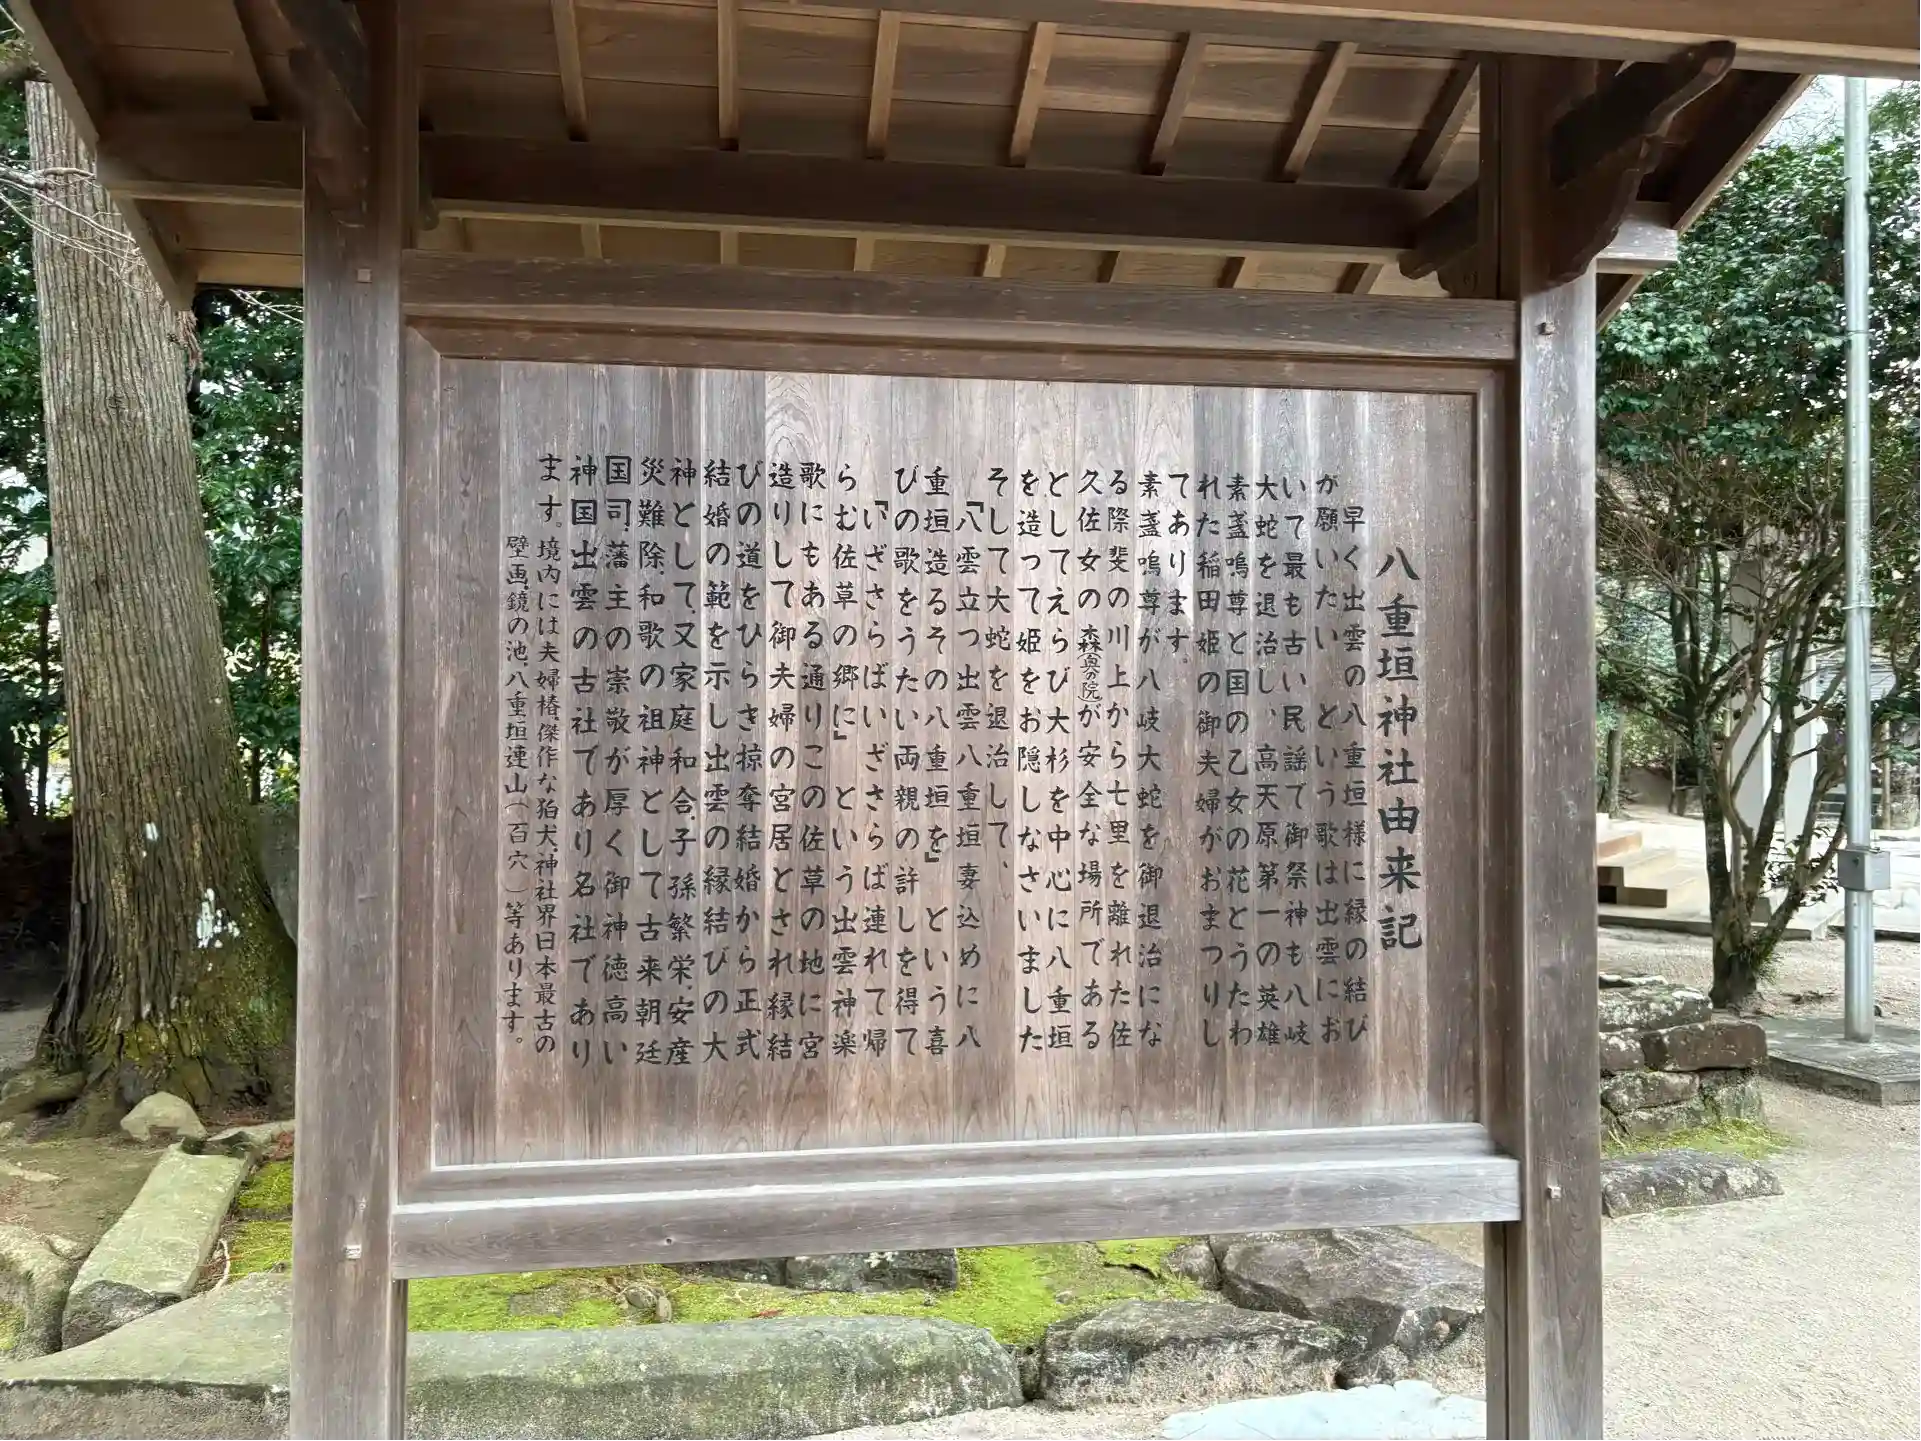 八重垣神社由来記
早く出雲の八重垣様に縁の結び
が願いたい、という歌は出雲にお
いて最も古い民謡で御祭神も八岐
大蛇を退治し、高天原第一の英雄
素盞嗚尊と国の乙女の花とうたわ
れた稲田姫の御夫婦がおまつりし
てあります。
素盞嗚尊が八岐大蛇を御退治にな
る際斐の川上から七里を離れた佐
久佐女の森(奥の院)が安全な場所である
としてえらび大杉を中心に八重垣
を造って姫をお隠しなさいました
そして大蛇を退治して、
「八雲立つ出雲八重垣妻込めに八
重垣造るその八重垣を」という喜
びの歌をうたい両親の許しを得て
「いざさらばいざさらば連れて帰
らむ佐草の郷に」という出雲神楽
歌にもある通りこの佐草の地に宮
造りして御夫婦の宮居とされ縁結
びの道をひらき掠奪結婚から正式
結婚の範を示し出雲の縁結びの大
神として、又家庭和合、子孫繁栄、安産
災難除、和歌の祖神として古来朝廷
国司、藩主の崇敬が厚く御神徳高い
神国出雲の古社であり名社であり
ます。境内には夫婦椿、傑作な狛犬、神社界日本最古の
壁画、鏡の池、八重垣連山(百穴)等あります。